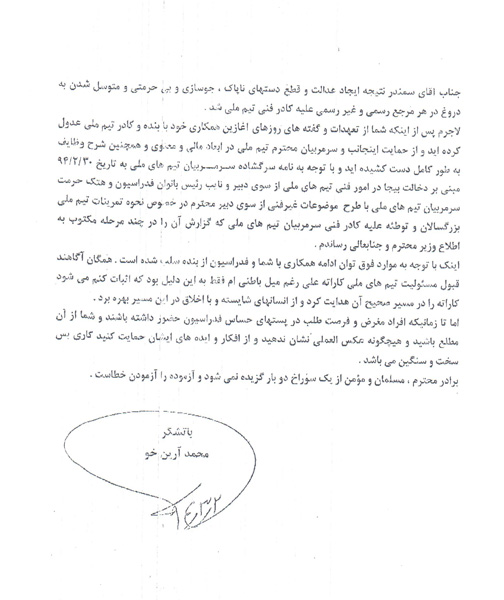 جناب اقای سمندر نتیجه ایجاد عدالت و قطع دستهای ناپاک ، جوسازی و بی حرمتی و متوسل شدن به
دروغ در هر مرجع رسمی و غیر رسمی علیه کادر فنی تیم ملی شد .
لاجرم پس از اینکه شما از تعهدات و گفته های روزهای اغازین همکاری خود با بنده و کادر تیم ملی عدول
کرده اید و از حمایت اینجانب و سرمربیان محترم تیم ملی در ابعاد مالی و معنوی و همچنین شرح وظایف
به طور کامل دست کشیده اید و با توجه به نامه سرگشاده سرمربیان تیم های ملی به تاریخ ۹۴/۲/۳۰
مبنی بر دخالت بیجا در امور فنی تیم های ملی از سوی دبیر و نایب رئیس بانوان فدراسیون و هتک حرمت
سرمربیان تیم های ملی با طرح موضوعات غیرفنی از سوی دبیر محترم در خصوص نحوه تمرینات تیم ملی
بزرگسالان و توطئه علیه کادر فنی سرمربیان تیم های ملی که گزارش آن را در چند مرحله مکتوب به
اطلاع وزیر محترم و جنابعالی رساندم .
اینک با توجه به موارد فوق توان ادامه همکاری با شما و فدراسیون از بنده سلب شده است . همگان آگاهند
قبول مسئولیت تیم های ملی کاراته علی رغم میل باطنی ام فقط به این دلیل بود که اثبات کنم می شود
کاراته را در مسیر صحیح آن هدایت کرد و از انسانهای شایسته و با اخلاق در این مسیر بهره برد .
اما تا زمانیکه افراد مغرض و فرصت طلب در پستهای حساس فدراسیون حضور داشته باشند و شما از آن
مطلع باشید و هیچگونه عکس العملی نشان ندهید و از افکار و ایده های ایشان حمایت کنید کاری بس
سخت و سنگین می باشد .
برادر محترم ، مسلمان و مؤمن از یک سوراخ دو بار گزیده نمی شود و آزموده را آزمودن خطاست .
باتشکر
محمد آرین خو